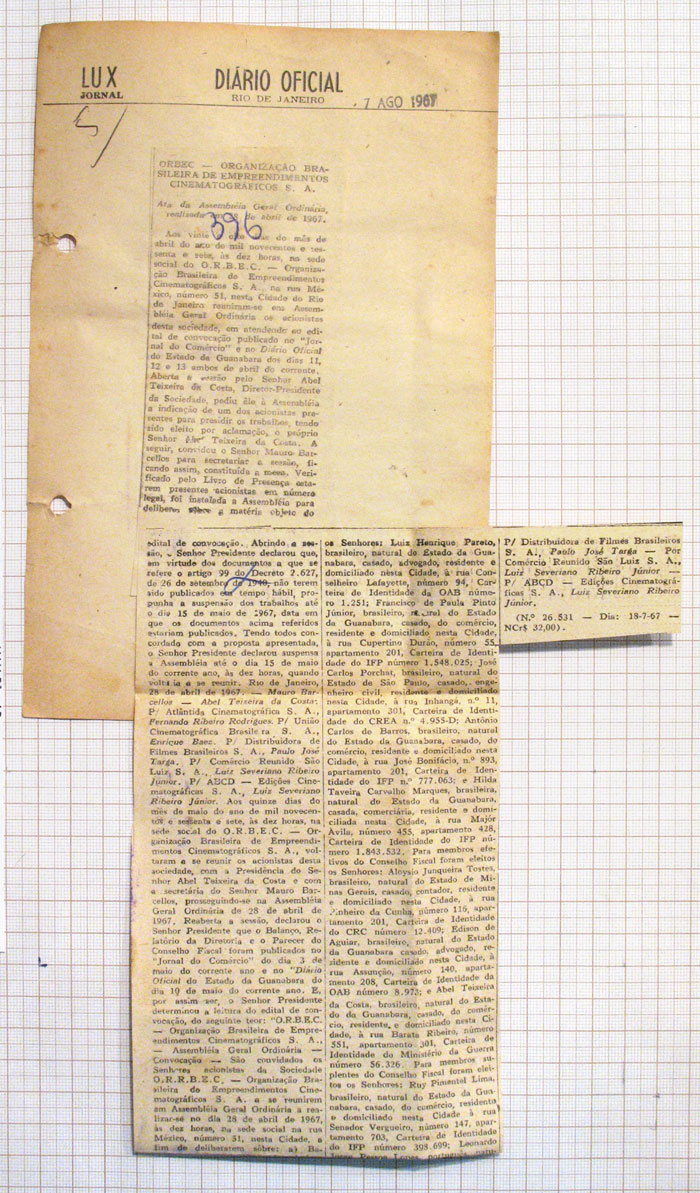 LUX
JORNAL
DIÁRIO OFICIAL
RIO DE JANEIRO
7 AGO 1967
5/
ORBEC — ORGANIZAÇÃO BRA-
SILEIRA DE EMPREENDIMENTOS
CINEMATOGRÁFICOS S. A.
Ata da Assembléia Geral Ordinária,
realizada de abril de 1967.
396
Aos vinte e oito dias do mês de
abril do ano de mil novecentos e ses-
senta e sete, às dez horas, na sede
social do O.R.B.E.C. — Organiza-
ção Brasileira de Empreendimentos
Cinematográficos S. A., na rua Mé-
xico, número 51, nesta Cidade do Rio
de Janeiro reuniram-se em Assem-
bléia Geral Ordinária os acionistas
desta sociedade, em atendendo ao edi-
tal de convocação publicado no "Jor-
nal do Comércio" e no Diário Oficial
do Estado da Guanabara dos dias 11,
12 e 13 ambos de abril do corrente.
Aberta a sessão pelo Senhor Abel
Teixeira da Costa, Diretor-Presidente
da Sociedade, pediu êle à Assembléia
a indicação de um dos acionistas pre-
sentes para presidir os trabalhos, tendo
sido eleito por aclamação, o próprio
Senhor Abel Teixeira da Costa. A
seguir, convidou o Senhor Mauro Bar-
cellos para secretariar a sessão, fi-
cando assim, constituída a mesa. Veri-
ficado pelo Livro de Presença esta-
rem presentes acionistas em número
legal, foi instalada a Assembléia para
deliberar sôbre a matéria objeto do
edital de convocação. Abrindo a ses-
são, o Senhor Presidente declarou que,
em virtude dos documentos a que se
refere o artigo 99 do Decreto 2.627,
de 26 de setembro de 1940, não terem
sido publicados em tempo hábil, pro-
punha a suspensão dos trabalhos até
o dia 15 de maio de 1967, data em
que os documentos acima referidos
estariam publicados. Tendo todos con-
cordado com a proposta apresentada,
o Senhor Presidente declarou suspensa
a Assembléia até o dia 15 de maio
do corrente ano, às dez horas, quando
voltaria a se reunir. Rio de Janeiro,
28 de abril de 1967. — Mauro Bar-
cellos — Abel Teixeira da Costa.
P/ Atlântida Cinematográfica S. A.,
Fernando Ribeiro Rodrigues. P/ União
Cinematográfica Brasileira S. A.,
Enrique Baez. P/ Distribuidora de
Filmes Brasileiros S. A., Paulo José
Targa. P/ Comércio Reunido São
Luiz S. A., Luiz Severiano Ribeiro
Júnior. P/ ABCD — Edições Cine-
matográficas S. A., Luiz Severiano
Ribeiro Júnior. Aos quinze dias do
mês de maio do ano de mil novecen-
tos e sessenta e sete, às dez horas, na
sede social do O.R.B.E.C. — Or-
ganização Brasileira de Empreendi-
mentos Cinematográficos S. A., vol-
taram a se reunir os acionistas desta
sociedade, com a Presidência do Se-
nhor Abel Teixeira da Costa e com
a secretária do Senhor Mauro Bar-
cellos, prosseguindo-se na Assembléia
Geral Ordinária de 28 de abril de
1967. Reaberta a sessão, declarou o
Senhor Presidente que o Balanço, Re-
latório da Diretoria e o Parecer do
Conselho Fiscal foram publicados no
"Jornal do Comércio" do dia 3 de
maio do corrente ano e no "Diário
Oficial do Estado da Guanabara do
dia 10 de maio do corrente ano. E,
por assim ser, o Senhor Presidente
determinou a leitura do edital de con-
vocação, do seguinte teor: "O.R.B.E.C.
— Organização Brasileira de Empre-
endimentos Cinematográficos S. A.,
— Assembléia Geral Ordinária —
Convocação — São convidados os
Senhores acionistas da Sociedade
O.R.R.B.E.C. — Organização Bra-
sileira de Empreendimentos Cine-
matográficos S. A. a se reunirem
em Assembléia Geral Ordinária a rea-
lizar-se no dia 28 de abril de 1967,
às dez horas, na sede social na rua
México, número 51, nesta Cidade, a
fim de deliberarem sôbre: a) Ba-
os Senhores: Luiz Henrique Pareto,
brasileiro, natural do Estado da Gua-
nabara, casado, advogado, residente e
domiciliado nesta Cidade, à rua Con-
selheiro Lafayette, número 94, Car-
teira de Identidade da OAB núme-
ro 1.251; Francisco de Paula Pinto
Júnior, brasileiro, natural do Estado
da Guanabara, casado, do comércio,
residente e domiciliado nesta Cidade,
à rua Cupertino Durão, número 55,
apartamento 201, Carteira de Identi-
dade do IFP número 1.548.025; José
Carlos Porchat, brasileiro, natural do
Estado de São Paulo, casado, enge-
nheiro civil, residente e domiciliado
nesta Cidade, à rua Inhangá, n.º 11,
apartamento 301, Carteira de Identi-
dade do CREA n.º 4.955-D; Antônio
Carlos de Barros, brasileiro, natural
do Estado da Guanabara, casado, do
comércio, residente e domiciliado nesta
Cidade, à rua José Bonifácio, n.º 893,
apartamento 201, Carteira de Iden-
tidade do IFP n.º 777.063; e Hilda
Taveira Carvalho Marques, brasileira,
natural de Estado da Guanabara,
casada, comerciária, residente e domi-
ciliada nesta Cidade, à rua Majór
Ávila, número 455, apartamento 428,
Carteira de Identidade do IFP nú-
mero 1.843.532. Para membros efe-
tivos do Conselho Fiscal foram eleitos
os Senhores: Aloysio Junqueira Tostes,
brasileiro, natural do Estado de Mi-
nas Gerais, casado, contador, residente
e domiciliado nesta Cidade, à rua
Pinheiro da Cunha, número 116, apar-
tamento 201, Carteira de Identidade
do CRC número 12.409; Edison de
Aguiar, brasileiro, natural do Estado
da Guanabara casado, advogado, re-
sidente e domiciliado nesta Cidade, à
rua Assunção, número 140, aparta-
mento 208, Carteira de Identidade da
OAB número 8.973; e Abel Teixeira
da Costa, brasileiro, natural do Esta-
do da Guanabara, casado, do comér-
cio, residente, e domiciliado nesta Ci-
dade, à rua Barata Ribeiro, número
551, apartamento 301, Carteira de
Identidade do Ministério da Guerra
número 56.326. Para membros su-
plentes do Conselho Fiscal foram elei-
tos os Senhores: Ruy Pimentel Lima,
brasileiro, natural do Estado da Gua-
nabara, casado, do comércio, residente
e domiciliado nesta Cidade à rua
Senador Vergueiro, número 147, apar-
tamento 703, Carteira de Identidade
do IFP número 398.699; Leonardo
P/ Distribuidora de Filmes Brasileiros
S. A., Paulo José Targa — Por
Comércio Reunido São Luiz S. A.,
Luiz Severiano Ribeiro Júnior —
P/ ABCD — Edições Cinematográ-
ficas S. A., Luiz Severiano Ribeiro
Júnior.
(N.º 26.531 — Dia: 18-7-67 —
NCr$ 32,00).